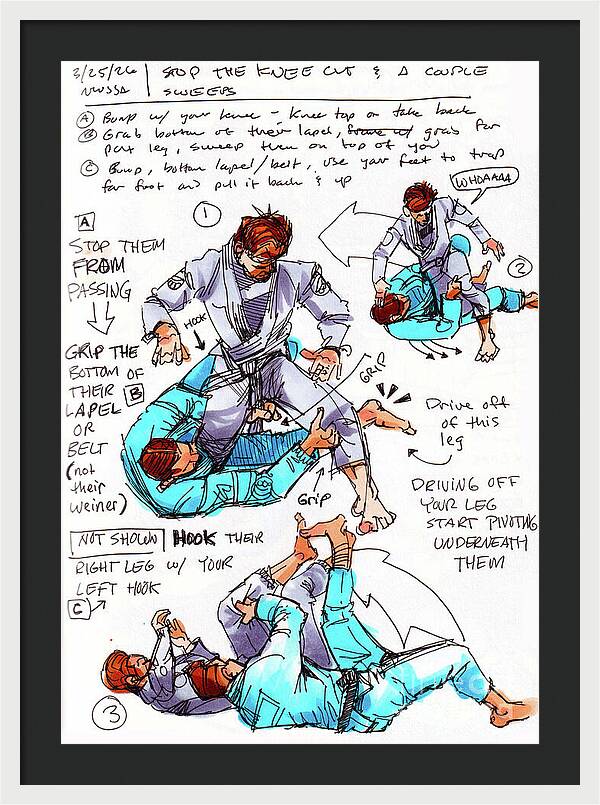 3/25/26 | STOP THE KNEE CUT & A COUPLE
NWSSA SWEEPS
Ⓐ Bump w/ your knee - Knee top or take back
Ⓑ Grab bottom of their lapel, grab far
leg, sweep them on top of you
Ⓒ Bump, bottom lapel/belt, use your feet to trap
far foot and pull it back & up
WHOAAAA
①
②
A
STOP THEM
FROM
PASSING
HOOK
GRIP THE
BOTTOM OF
THEIR B
LAPEL
OR
BELT
(not
their
weiner)
GRIP
Drive off
of this
leg
GRIP
DRIVING OFF
YOUR LEG
START PIVOTING
UNDERNEATH
THEM
NOT SHOWN HOOK THEIR
RIGHT LEG W/ YOUR
LEFT HOOK
C
③